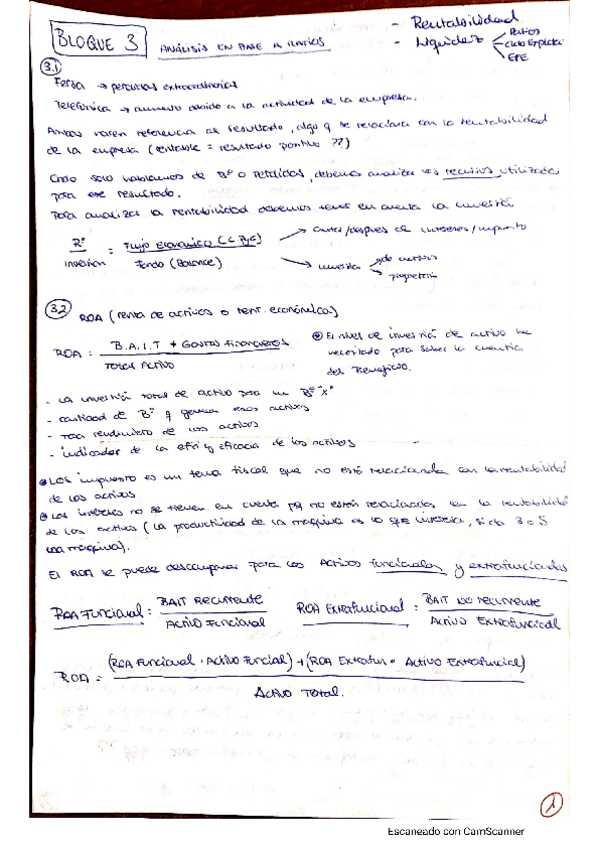 BLOQUE 3 ANÁLISIS EN BASE A RATIOS
- Rentabilidad
- Liquidez
Ratios
Ciclo Explotac
EFE
3.1
Fersa → pérdidas extraordinarias
Telefónica → aumento debido a la actividad de la empresa.
Ambas hacen referencia al resultado, algo q se relaciona con la rentabilidad
de la empresa (rentable = resultado positivo ??)
Cndo solo hablamos de Bº o Pérdidas debemos analizar los recursos utilizados
para ese resultado.
Para analizar la rentabilidad debemos tener en cuenta la inversión
Rº / Inversión = Flujo económico (C PyG) / Fondo (Balance)
antes/después de intereses/impuesto
inversión
propietario
3.2 ROA (renta de activos o rent. económica)
ROA: B.A.I.T + Gastos financieros / TOTAL ACTIVO
El nivel de inversión de activo he
necesitado para saber la cuantía
del Beneficio.
- La inversión total de activo para un Bº "x"
- cantidad de Bº q genera esos activos
- rendimiento de los activos
- indicador de la efi y eficacia de los activos
Los impuesto es un tema fiscal que no está relacionada con la rentabilidad
de los activos
Los intereses no se tienen en cuenta pq no están relacionados con la rentabilidad
de los activos (la productividad de la maquina es lo que interesa, si da 3 o 5
la maquina).
El ROA se puede descomponer para los Activos funcionales y extrafuncionales
ROA Funcional: BAIT RECURRENTE / ACTIVO Funcional
ROA Extrafuncional: BAIT NO RECURRENTE / ACTIVO EXTRAFUNCIONAL
ROA = (ROA Funcional · Activo Funcial) + (ROA Extrafun · Activo Extrafuncial) / Activo TOTAL.
1
Escaneado con CamScanner